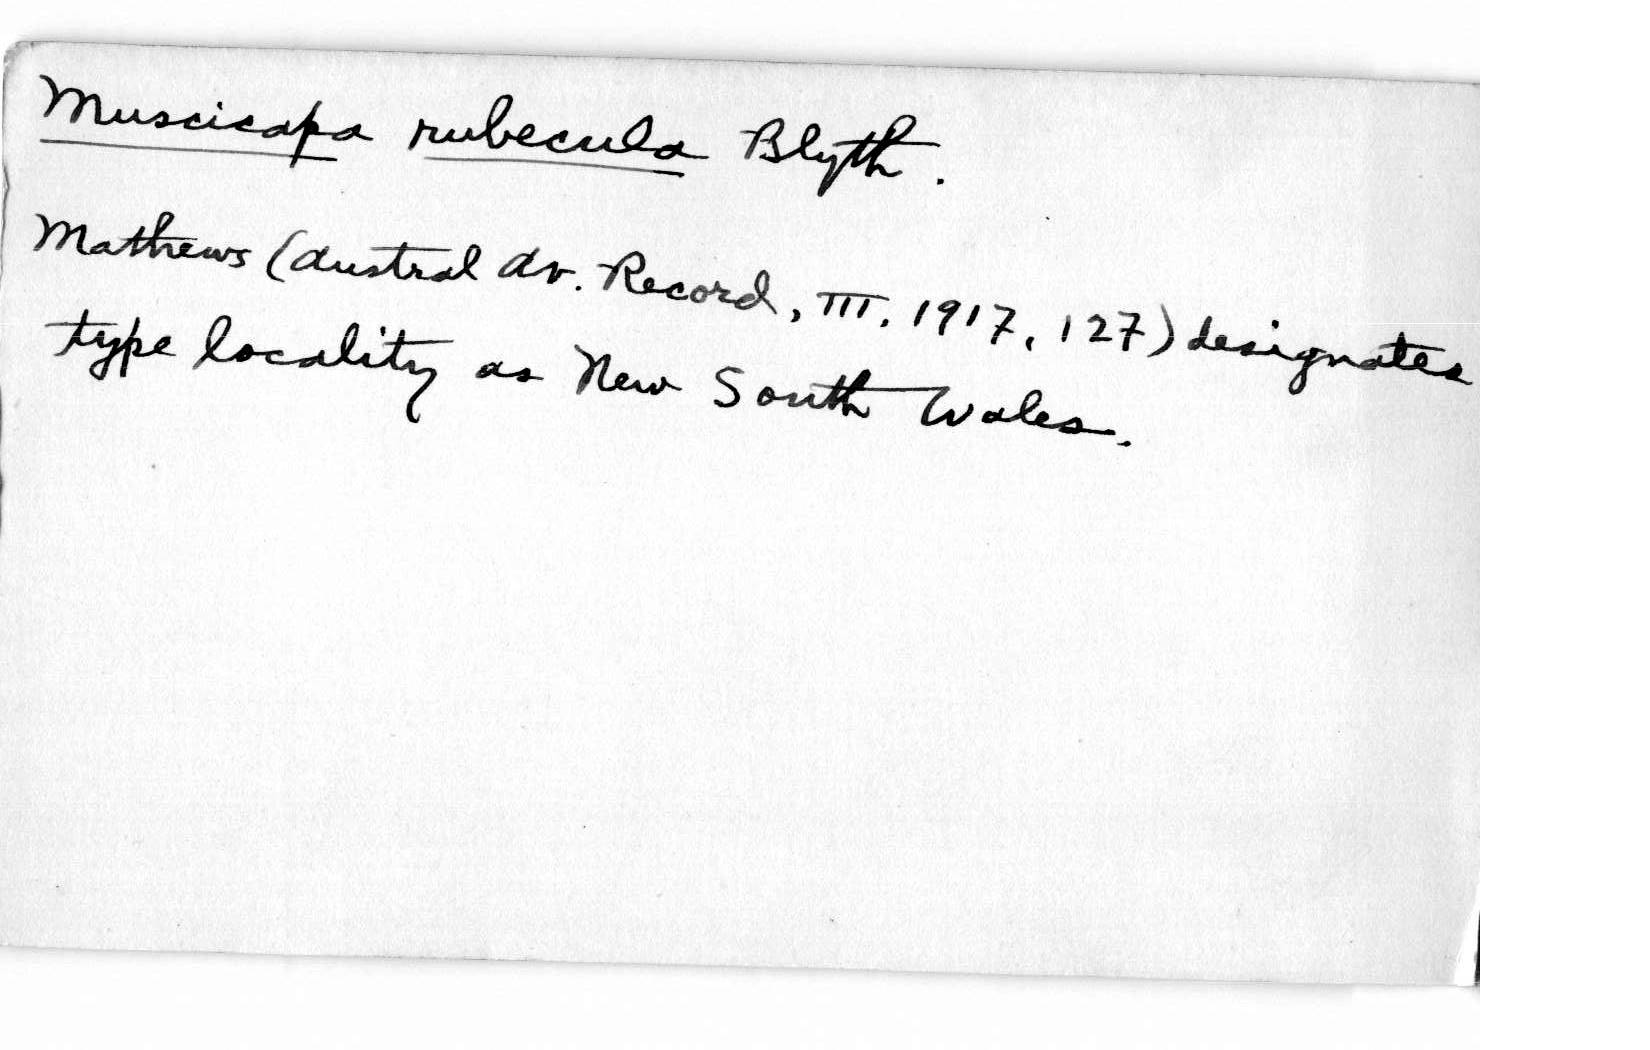 Muscicapa rubecula Blyth.
Mathews (Austral Av. Record, III, 1917, 127) designates
type locality as New South Wales.